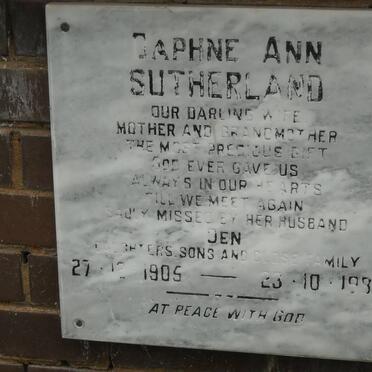 DAPHNE ANN
SUTHERLAND
OUR DARLING WIFE
MOTHER AND GRANDMOTHER
THE MOST PRECIOUS GIFT
GOD EVER GAVE US
ALWAYS IN OUR HEARTS
TILL WE MEET AGAIN
SADLY MISSED BY HER HUSBAND
DEN
DAUGHTERS, SONS AND FAMILY
1905 — 23·10·
AT PEACE WITH GOD